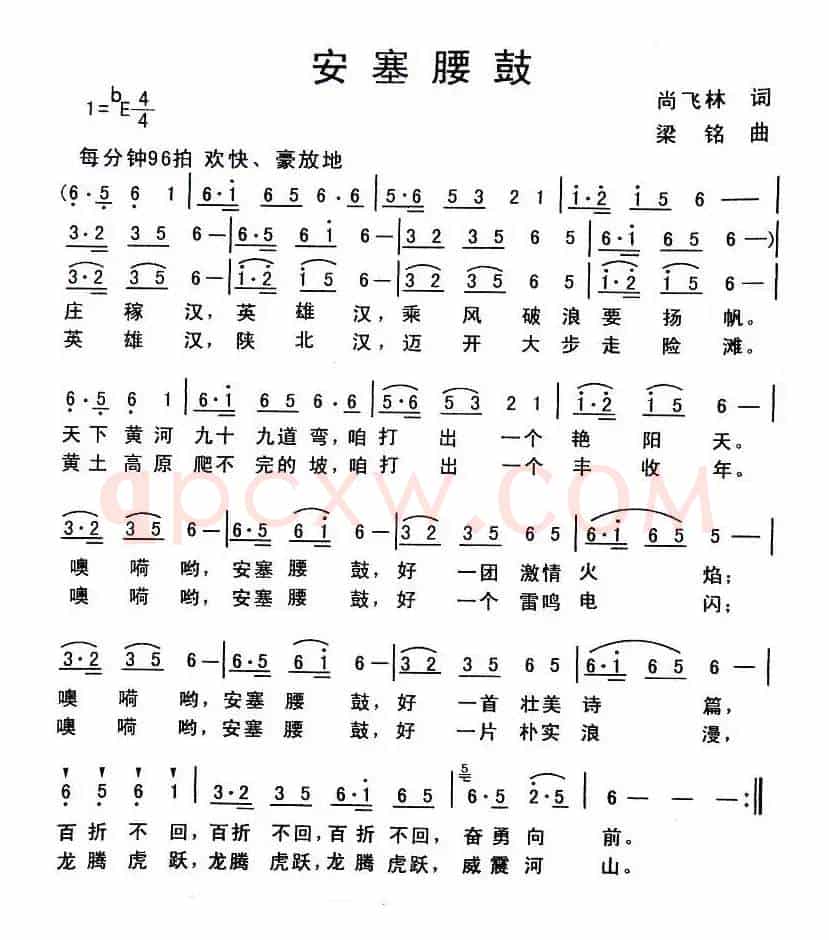 安塞腰鼓
1=ᵇE 4/4
尚飞林 词
梁 铭 曲
每分钟96拍 欢快、豪放地
(6·5 6 1 | 6·1 6 5 6·6 | 5·6 5 3 2 1 | 1·2 1 5 6 — |
3·2 3 5 6 — | 6·5 6 1 6 — | 3 2 3 5 6 5 | 6·1 6 5 6 —)
3·2 3 5 6 — | 1·2 1 5 6 — | 3 2 3 5 6 5 | 1·2 6 5 6 — |
庄 稼 汉,英 雄 汉,乘 风 破 浪 要 扬 帆。
英 雄 汉,陕 北 汉,迈 开 大 步 走 险 滩。
6·5 6 1 | 6·1 6 5 6·6 | 5·6 5 3 2 1 | 1·2 1 5 6 — |
天 下 黄 河 九十 九道 弯,咱 打 出 一个 艳 阳 天。
黄 土 高 原 爬不 完的 坡,咱 打 出 一个 丰 收 年。
3·2 3 5 6 — | 6·5 6 1 6 — | 3 2 3 5 6 5 | 6·1 6 5 5 — |
噢 嗬 哟,安塞 腰 鼓,好 一团 激情 火 焰;
噢 嗬 哟,安塞 腰 鼓,好 一个 雷鸣 电 闪;
3·2 3 5 6 — | 6·5 6 1 6 — | 3 2 3 5 6 5 | 6·1 6 5 6 — |
噢 嗬 哟,安塞 腰 鼓,好 一首 壮美 诗 篇,
噢 嗬 哟,安塞 腰 鼓,好 一片 朴实 浪 漫,
6 5 6 1 | 3·2 3 5 6·1 6 5 | 5 6·5 2·5 6 — | — — :‖
百 折 不 回,百折 不回,百折 不回,奋勇向 前。
龙 腾 虎 跃,龙腾 虎跃,龙腾 虎跃,威震河 山。
qpcxw.com